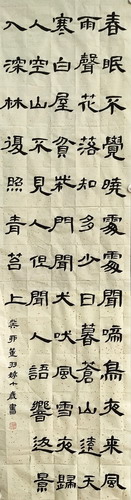 春眠不覺曉處處聞啼鳥夜來風
雨聲花落知多少日暮蒼山遠天
寒白屋貧柴門聞犬吠風雪夜歸
人空山不見人但聞人語響返景
入深林復照青苔上
癸卯董羽婷十歲書